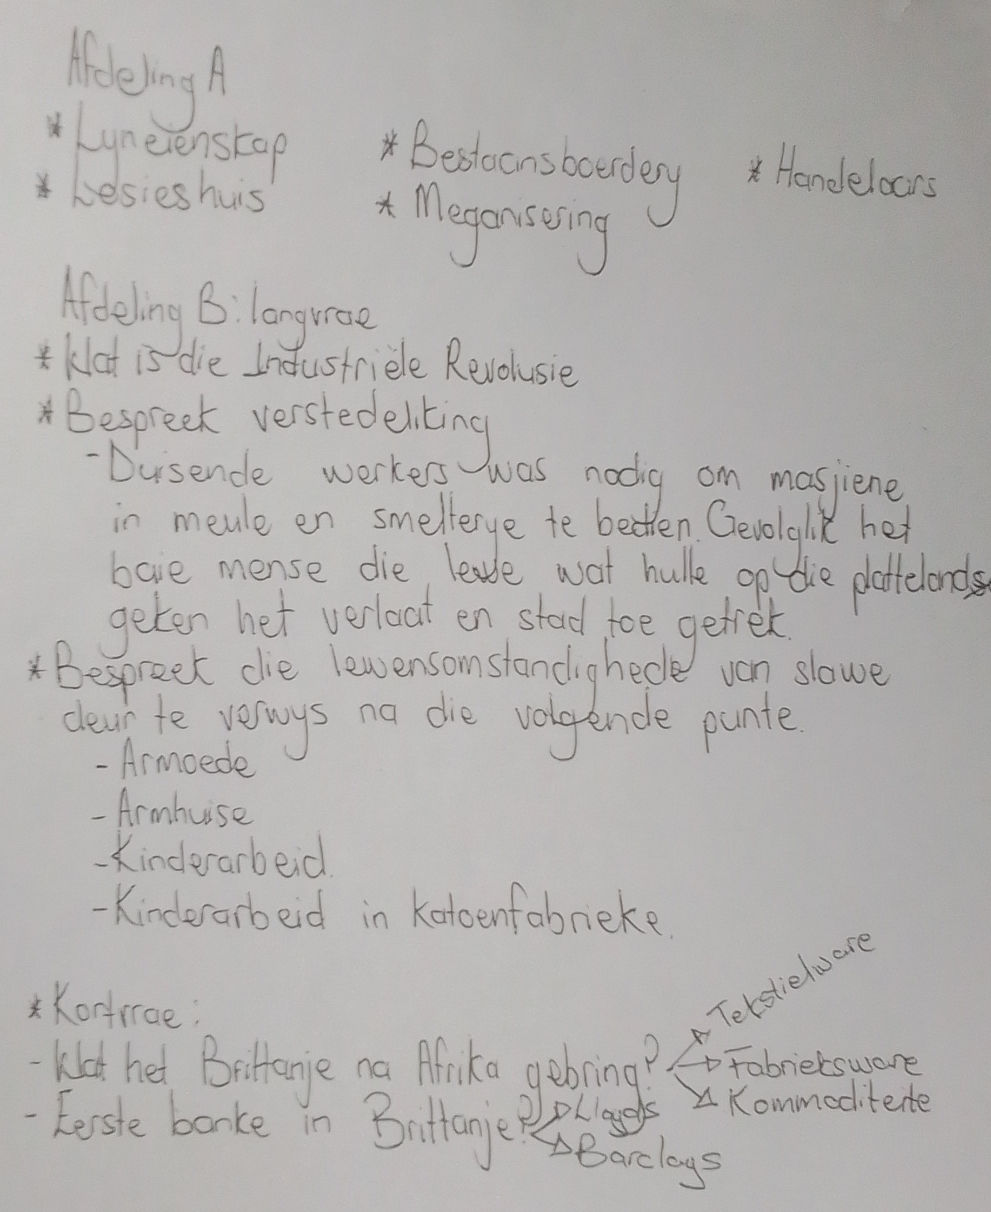 Afdeling A
* Lyneienskap * Bestaansboerdery * Handelaars
* Losieshuis * Meganisering
Afdeling B: langvrae
* Wat is die Industriële Revolusie
* Bespreek verstedeliking
- Duisende werkers was nodig om masjiene
in meule en smelterye te bedien. Gevolglik het
baie mense die lewe wat hulle op die plattelands
geken het verlaat en stad toe getrek.
* Bespreek die lewensomstandighede van slawe
deur te verwys na die volgende punte.
- Armoede
- Armhuise
- Kinderarbeid.
- Kinderarbeid in katoenfabrieke.
* Kortvrae:
Tekstielware
- Wat het Brittanje na Afrika gebring? Fabrieksware
Kommoditeite
- Eerste banke in Brittanje? Lloyds
Barclays